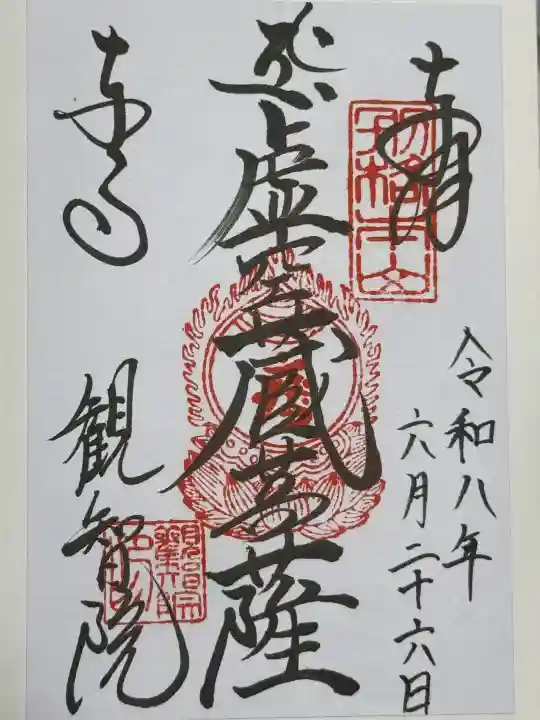 奉拝
令和八年
六月二十六日
五大虚空蔵菩薩
東寺
観智院